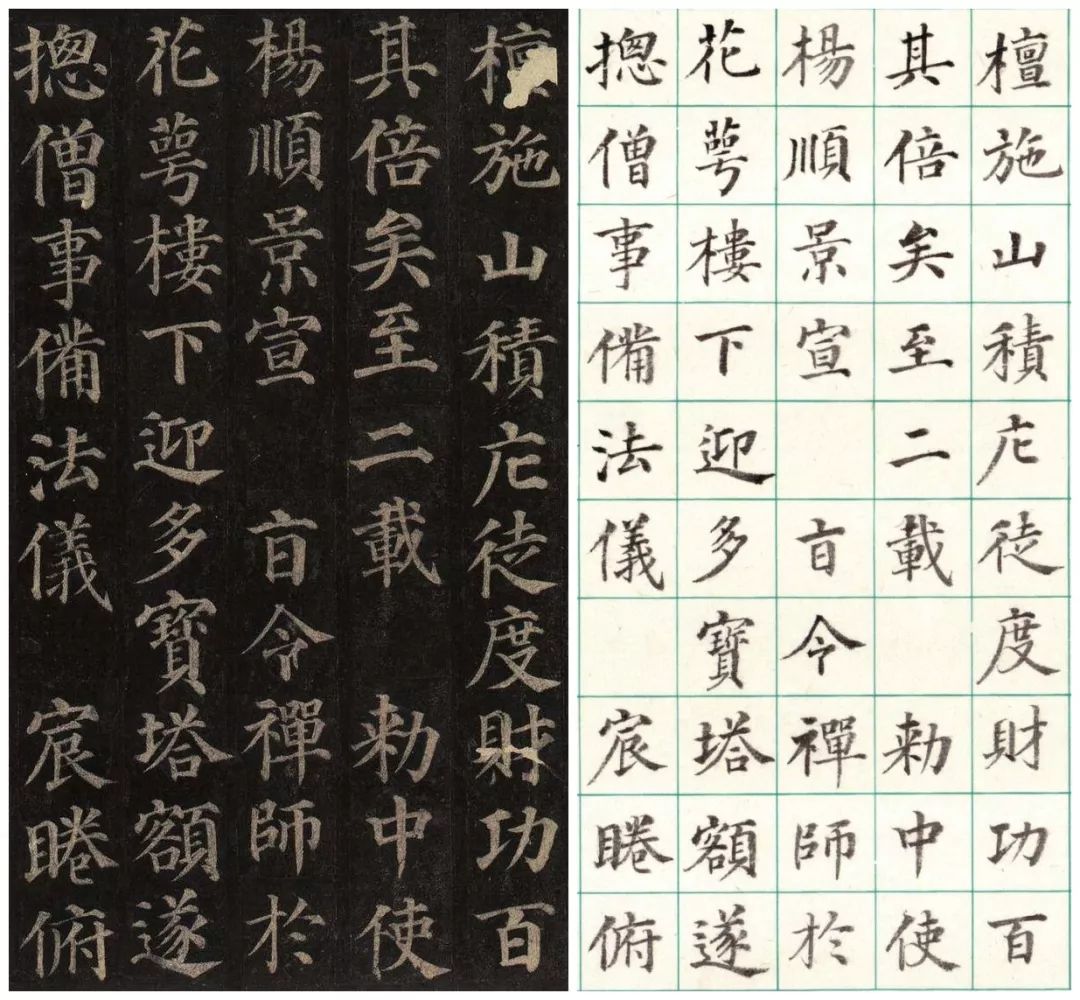 檀施山積庀徒度財功百
其倍矣至二載 勑中使
楊順景宣 㫖令禪師於
花萼樓下迎多寶塔額遂
摠僧事備法儀 宸睠俯
檀施山積庀徒度財功百
其倍矣至二載 勑中使
楊順景宣 㫖令禪師於
花萼樓下迎多寶塔額遂
摠僧事備法儀 宸睠俯